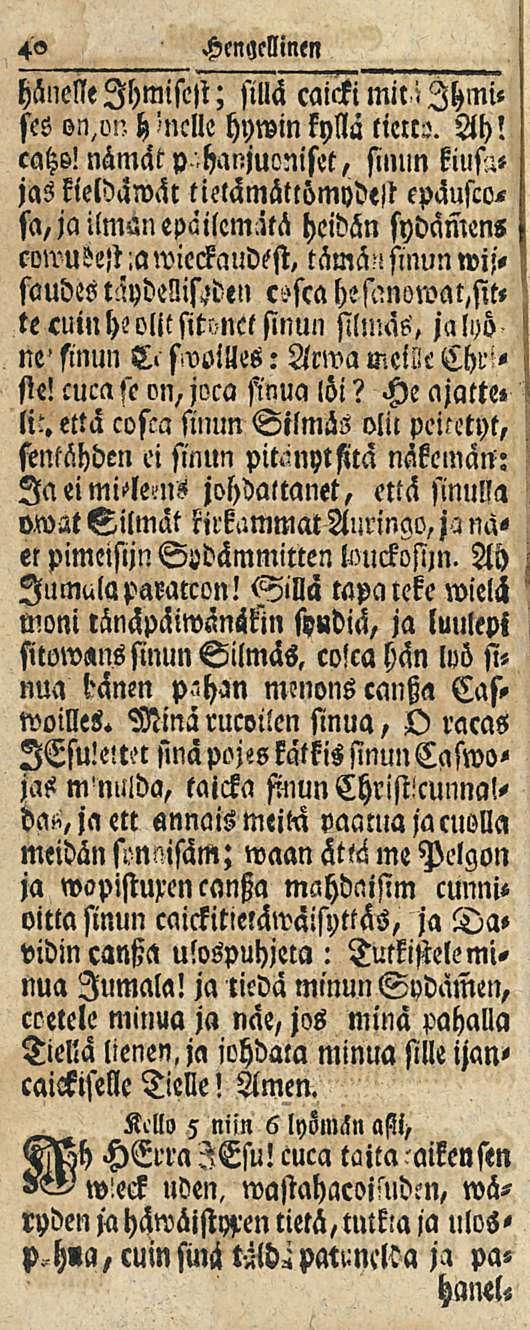 40 Hengellinen
hänelle Ihmisest; sillä caicki mitä Ihmi-
ses on, on hänelle hywin kyllä tietto. Ah!
catzo! nämät pahanjuoniset, sinun kiusa-
jas kieldäwät tietämättömydest epäusco-
sa, ja ilman epäilemätä heidän sydäm̃ens
cowudest ja wieckaudest, tämän sinun wij-
saudes täydellisyden cosca he sanowat, sit-
te cuin he olit sitonet sinun silmäs, ja lyö-
net sinun Caswoilles: Arwa meille Chri-
ste! cuca se on, joca sinua löi? He ajatte-
lit, että cosca sinun Silmäs olit peitetyt,
sentähden ei sinun pitänyt sitä näkemän:
Ja ei mieleens johdattanet, että sinulla
owat Silmät kirkammat Auringo, ja nä-
et pimeisijn Sydämmitten louckosijn. Ah
Jumala paratcon! Sillä tapa teke wielä
moni tänäpäiwänäkin syndiä, ja luulepi
sitowans sinun Silmäs, cosca hän lyö si-
nua hänen pahan menons canßa Cas-
woilles. Minä rucoilen sinua, O racas
JEsu! ettet sinä pojes kätkis sinun Caswo-
jas minulda, taicka sinun Christicunnal-
das, ja ett annais meitä paatua ja cuolla
meidän synneisäm; waan että me Pelgon
ja wopistuxen canßa mahdaisim cunni-
oitta sinun caickitietäwäisyttäs, ja Da-
vidin canßa ulospuhjeta: Tutkistele mi-
nua Jumala! ja tiedä minun Sydäm̃en,
coetele minua ja näe, jos minä pahalla
Tiellä lienen, ja johdata minua sille ijan-
caickiselle Tielle! Amen.
Kello 5 niin 6 lyömän asti,
Ah HErra JEsu! cuca taita caiken sen
wieckauden, wastahacoisuden, wä-
ryden ja häwäistyxen tietä, tutkia ja ulos-
puhua, cuin sinä täldä patunelda ja pa-
hanel-